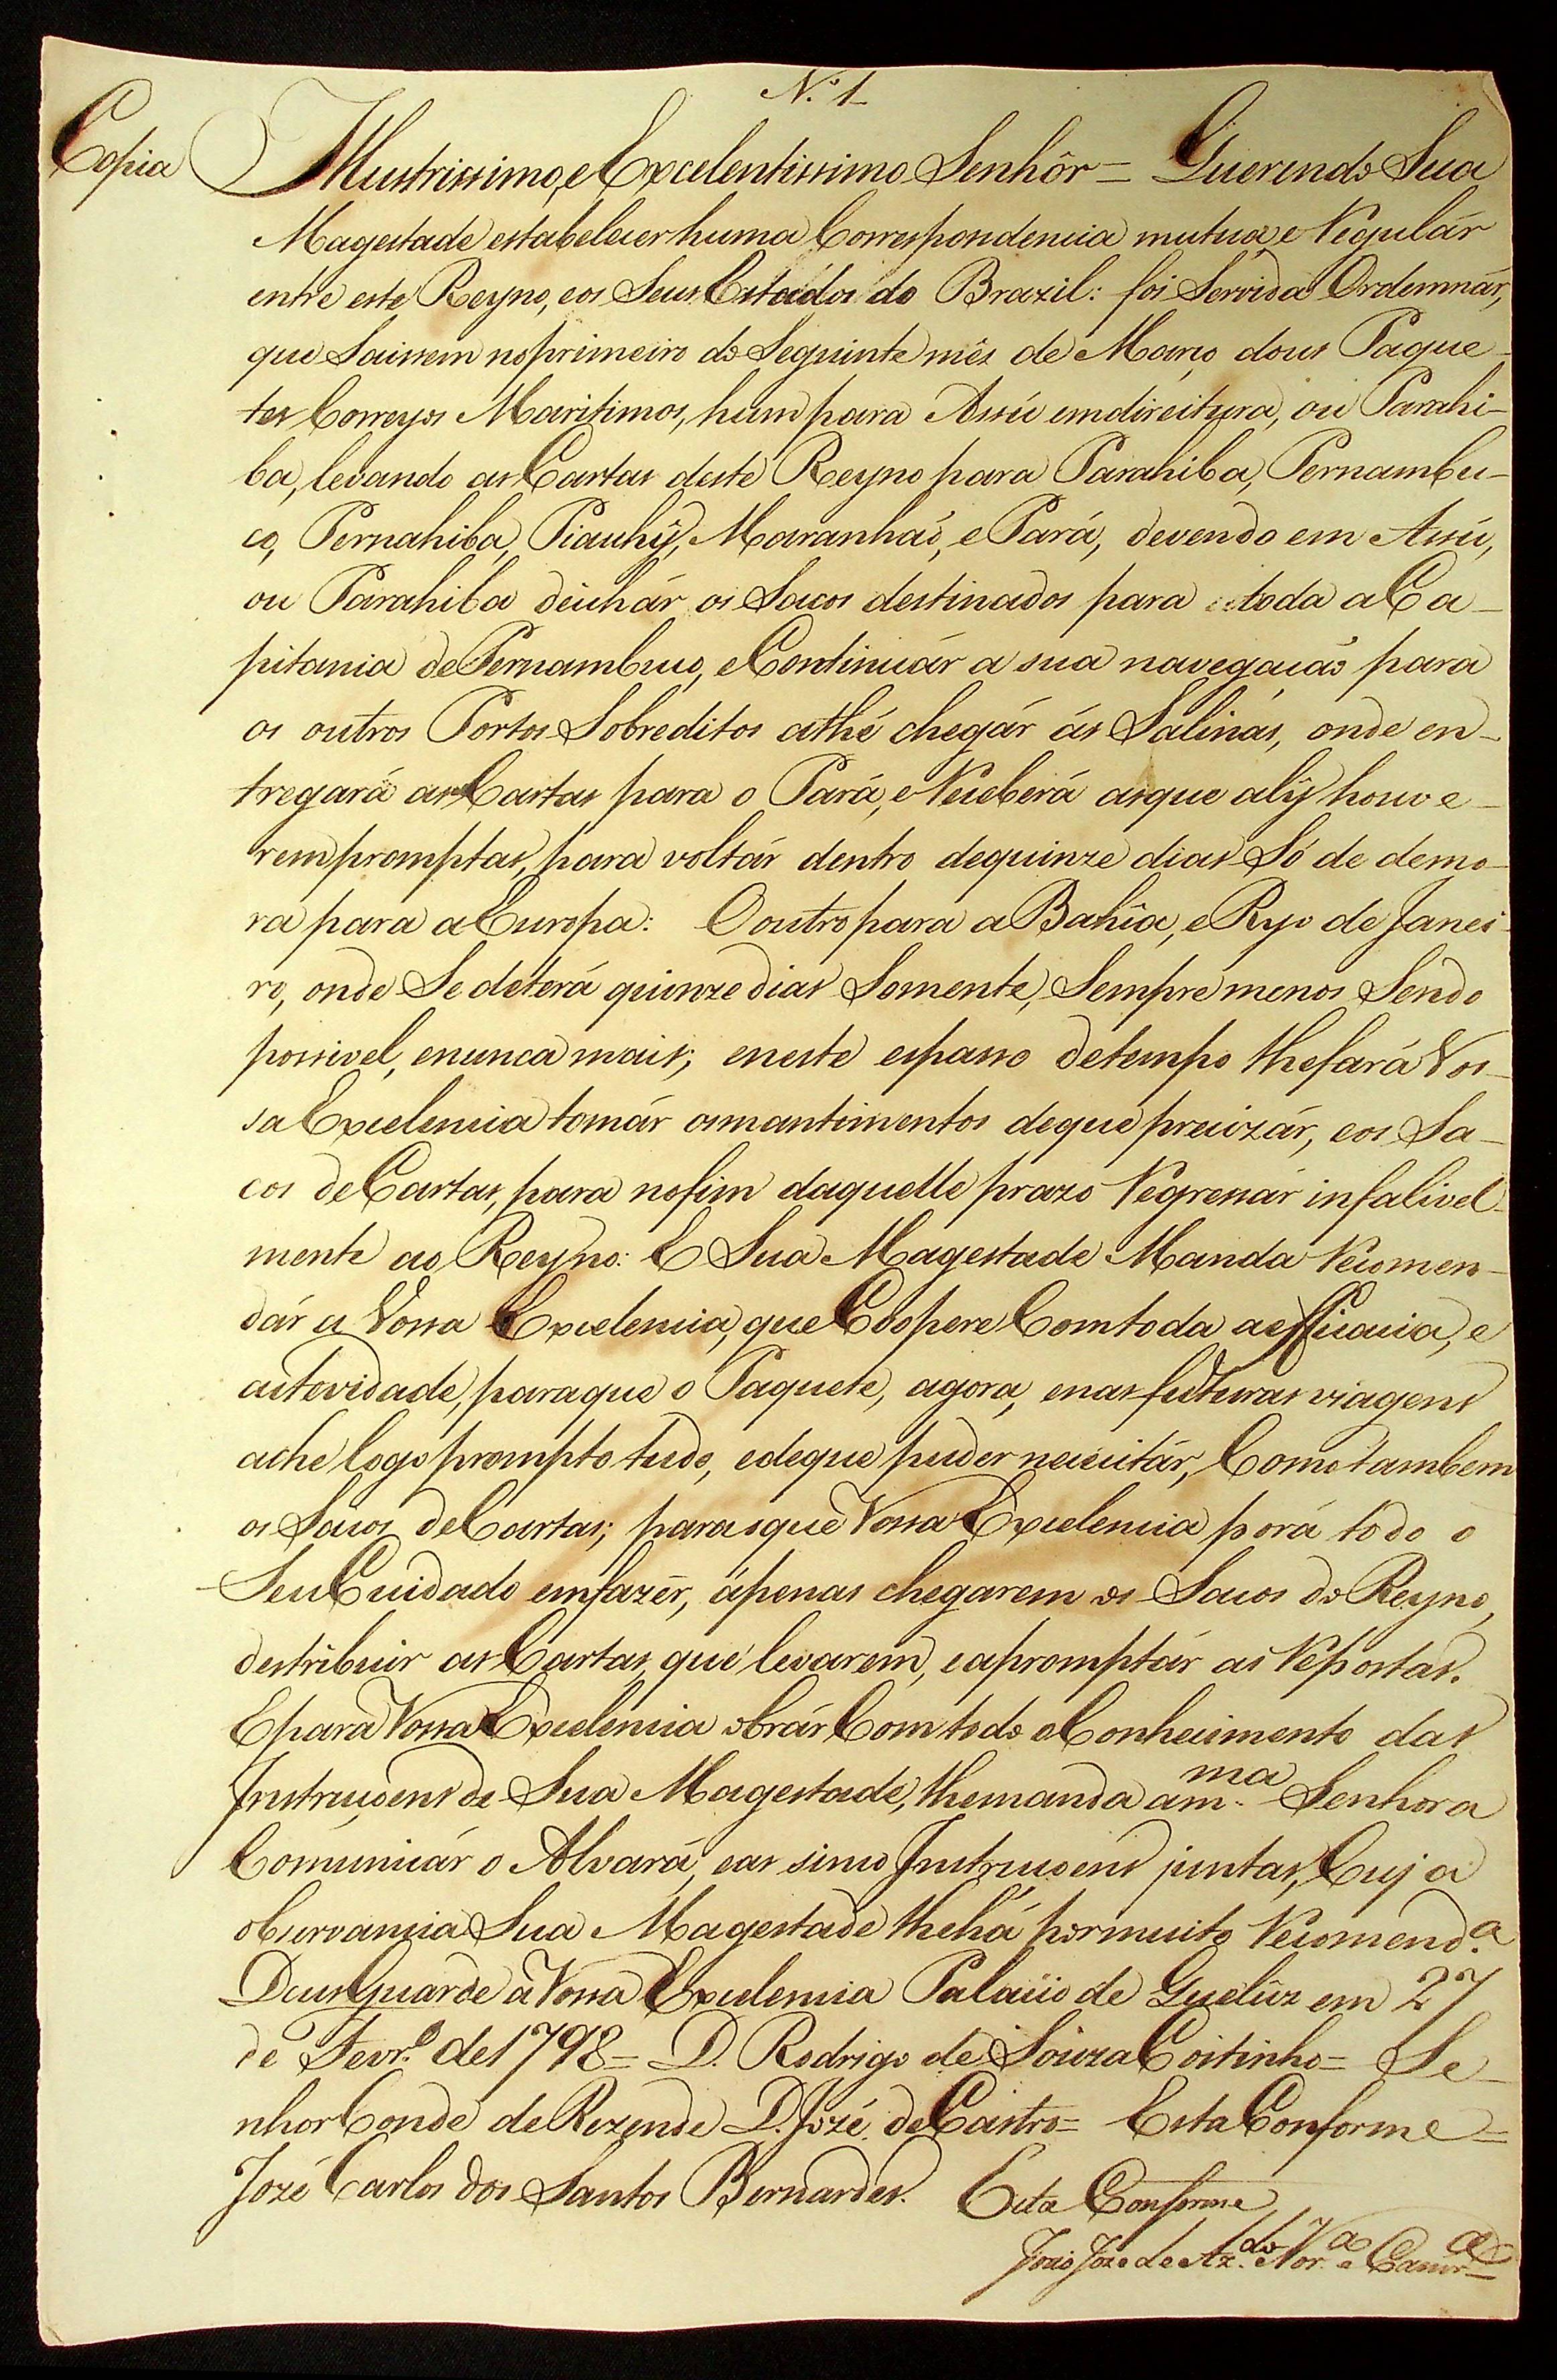 N.º 1
Copia Illustrissimo, e Excelentissimo Senhôr = Querendo Sua
Magestade estabelecer huma Correspondencia mutua, e Regulár
entre este Reyno, e os Seus Estados do Brazil: foi Servida Ordennár,
que Saissem no primeiro do Seguinte mês de Março dous Paque-
tes Correyos Maritimos, hum para Assú em direitura, ou Parahi-
ba, levando as Cartas deste Reyno para Parahiba, Pernambu-
co, Pernahiba, Piauhŷ, Maranhaõ, e Pará, devendo em Assú,
ou Parahiba deichár os Sacos destinados para toda a Ca-
pitania de Pernambuco, e Continuár a sua navegaçaõ para
os outros Portos Sobreditos athé chegár ás Salinas, onde en-
tregará as Cartas para o Pará, e Receberá as que alŷ houve-
rem promptas, para voltár dentro de quinze dias Só de demo-
ra para a Europa: O outro para a Bahîa, e Ryo de Janei-
ro, onde Se deterá quinze dias Somente, Sempre menos Sendo
possivel, e nunca mais; e neste espasso de tempo lhe fará Vos-
sa Excelencia tomár os mantimentos de que precizár, e os Sa-
cos de Cartas, para no fim daquelle prazo Regressár infalivel-
mente ao Reyno: E Sua Magestade Manda Recomen-
dár a Vossa Excelencia, que Coopere Com toda a efficacia, e
autovidade, para que o Paquete, agora, e nas fucturas viagens
ache logo prompto tudo, e de que puder necicitár, Como tambem
os Sacos de Cartas; para o que Vossa Excelencia porá todo o
Seu Cuidado em fazêr, ápenas chegarem os Sacos do Reyno,
destribuir as Cartas, que levarem, e apromptár as Repostas.
E para Vossa Excelencia obrár Com todo o Conhecimento das
Instruçoens de Sua Magestade, lhe manda a m.ma Senhora
Comunicár o Alvará, e as sinco Instrucoens juntas, Cuja
observancia Sua Magestade lhe há por muito Recomend.a
Deus Guarde a Vossa Excelencia Palacio de Quelûz em 27
de Fevr.º de 1798 = D. Rodrigo de Souza Coitinho = Se-
nhor Conde de Rezende D. Jozé de Castro = Esta Conforme =
Jozé Carlos dos Santos Bernardes. Esta Conforme
João Joze de Az.do